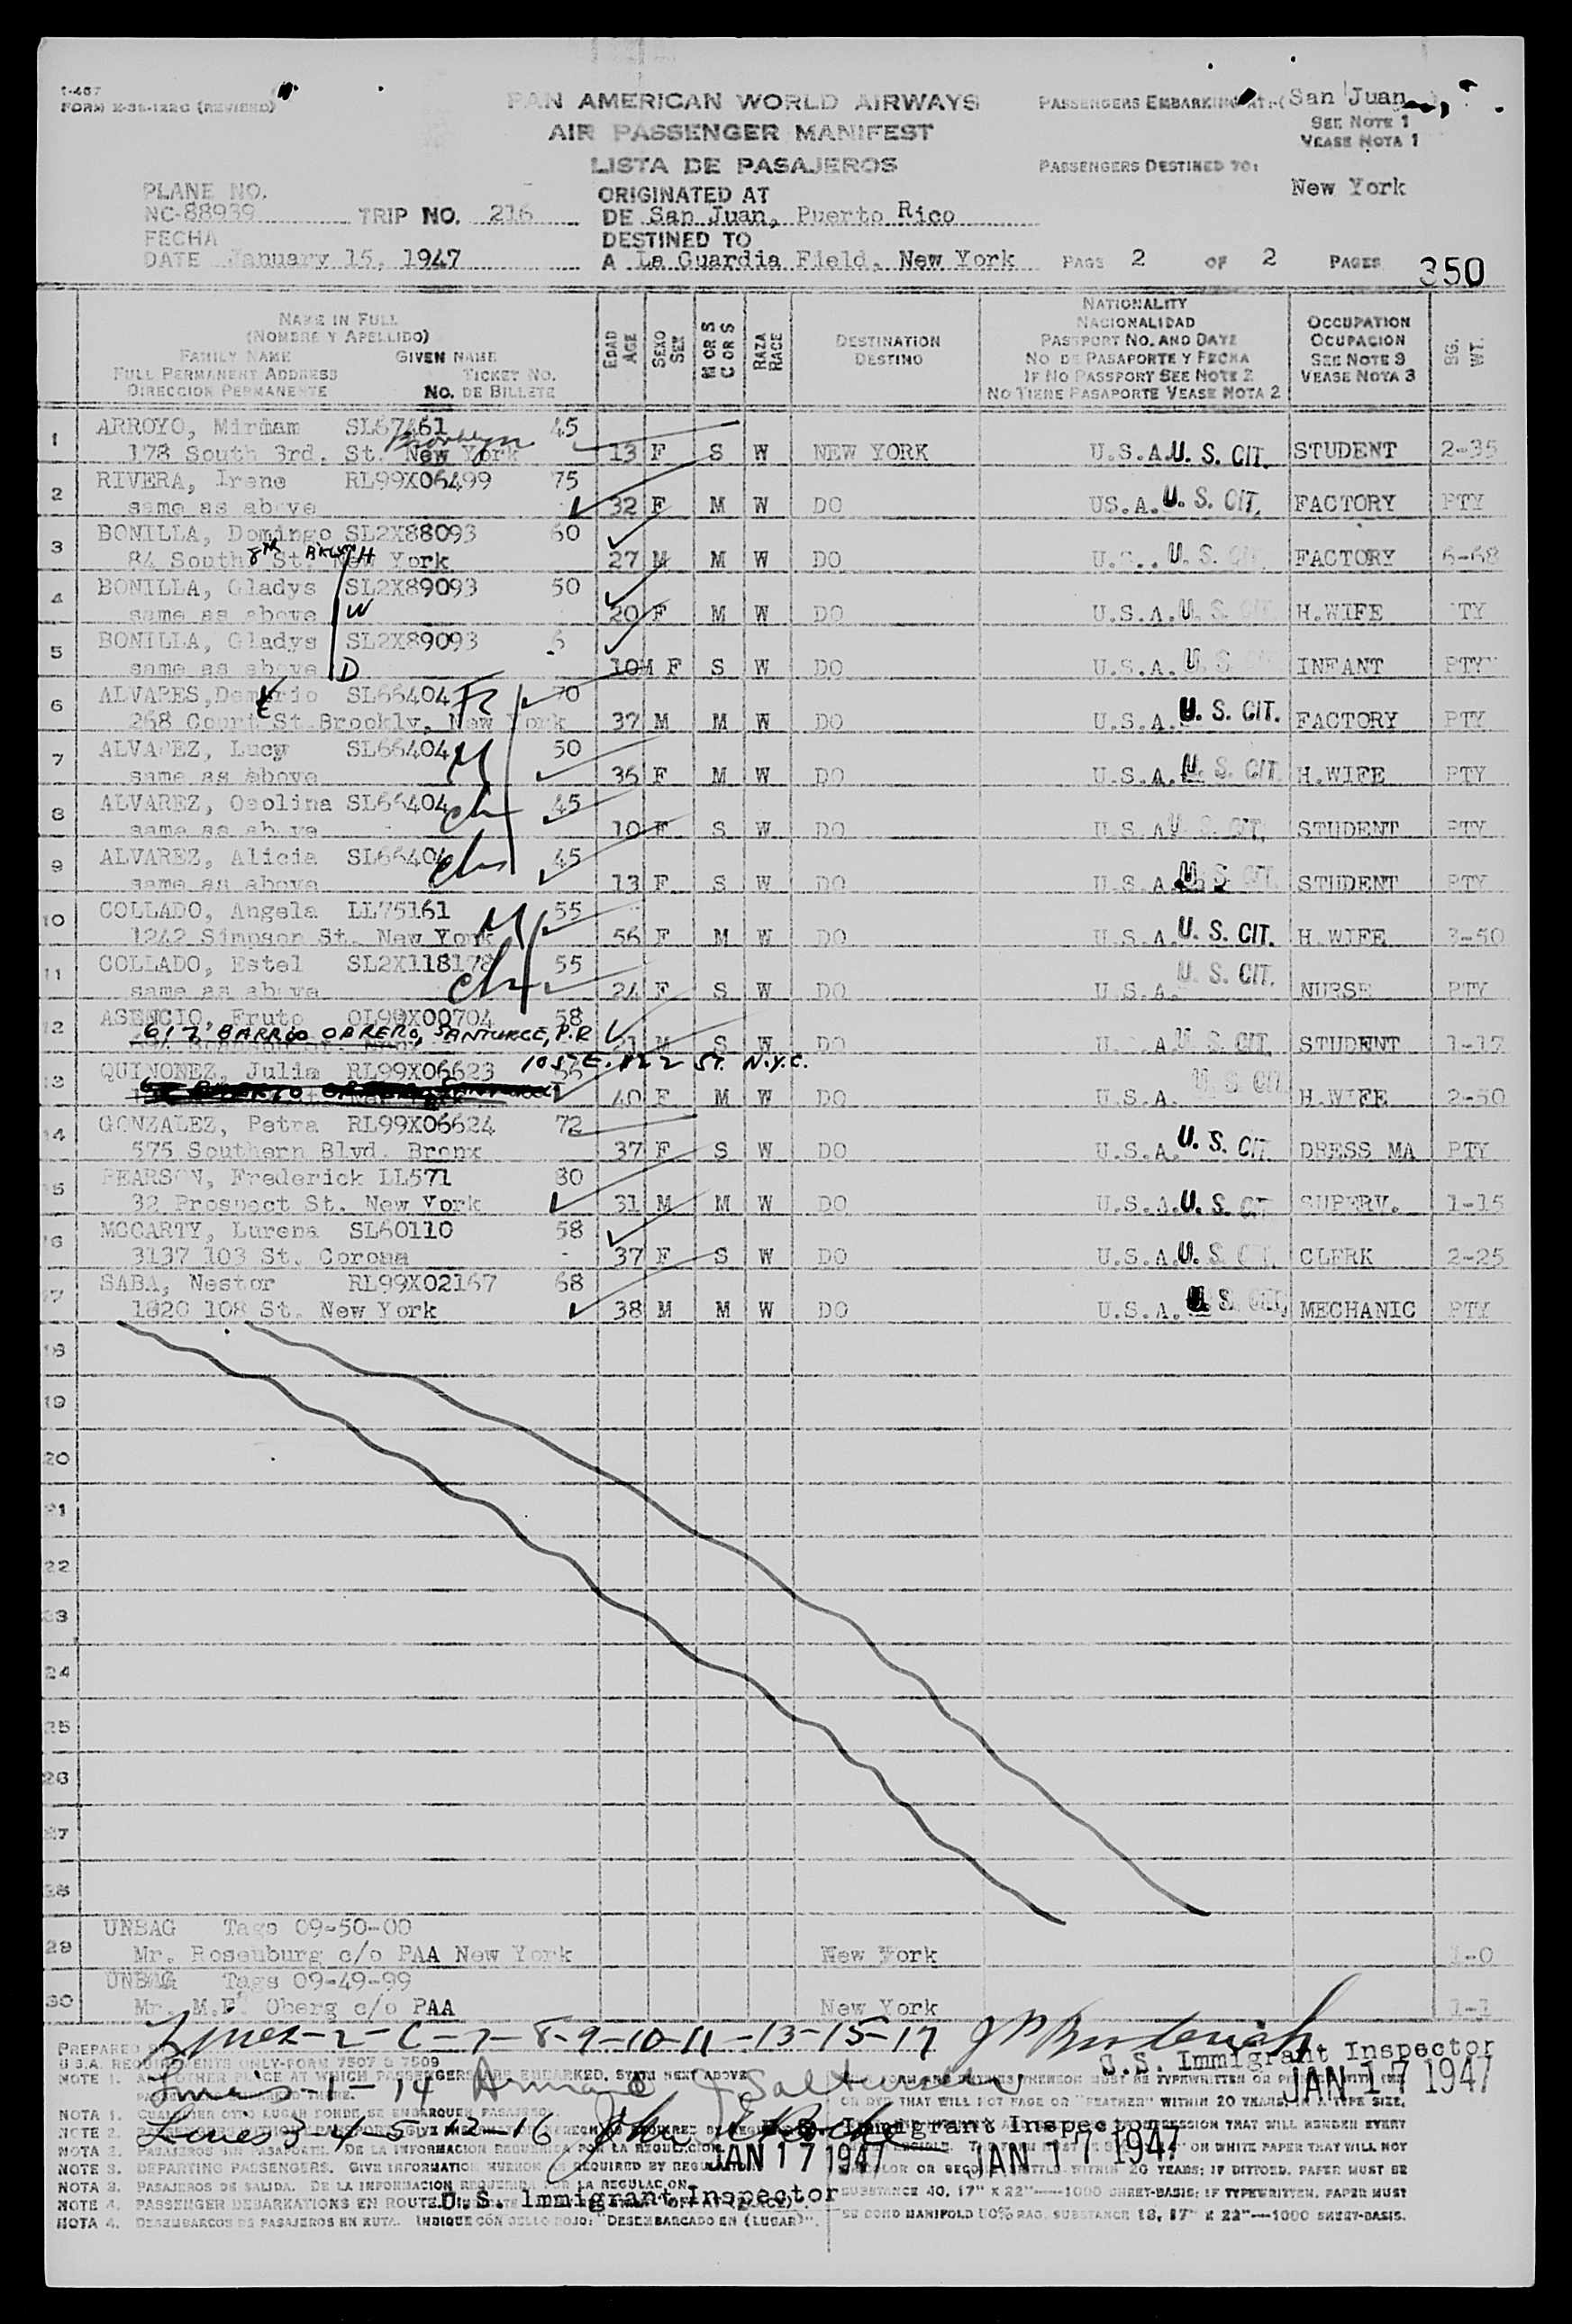 I-467
FORM X-38-122C (REVISED)
PAN AMERICAN WORLD AIRWAYS
AIR PASSENGER MANIFEST
LISTA DE PASAJEROS
PASSENGERS EMBARKING AT: (San Juan
SEE NOTE 1
VEASE NOTA 1
PASSENGERS DESTINED TO:
New York
PLANE NO.
NC-88939 TRIP NO. 216
FECHA
DATE January 15, 1947
ORIGINATED AT
DE San Juan, Puerto Rico
DESTINED TO
A La Guardia Field, New York
PAGE 2 OF 2 PAGES 350
NAME IN FULL
(NOMBRE Y APELLIDO)
FAMILY NAME GIVEN NAME
FULL PERMANENT ADDRESS TICKET NO.
DIRECCION PERMANENTE NO. DE BILLETE
EDAD AGE
SEXO SEX
M OR S C OR S
RAZA RACE
DESTINATION DESTINO
NATIONALITY
NACIONALIDAD
PASSPORT NO. AND DATE
NO DE PASAPORTE Y FECHA
IF NO PASSPORT SEE NOTE 2
NO TIENE PASAPORTE VEASE NOTA 2
OCCUPATION
OCUPACION
SEE NOTE 3
VEASE NOTA 3
WT.
1 ARROYO, Mirmam SL67461 45
178 South 3rd. St. New York Brooklyn 13 F S W NEW YORK U.S.A. U. S. CIT. STUDENT 2-35
2 RIVERA, Irene RL99X06499 75
same as above 32 F M W DO US.A. U. S. CIT. FACTORY PTY
3 BONILLA, Domingo SL2X88093 60
84 South 8th St. New York BKLYN H 27 M M W DO U.S. U. S. CIT. FACTORY 6-68
4 BONILLA, Gladys SL2X89093 50
same as above W 20 F M W DO U.S.A. U. S. CIT. H.WIFE TY
5 BONILLA, Gladys SL2X89093
same as above D 10M F S W DO U.S.A. U. S. INFANT PTY
6 ALVARES, SL66404 70
268 Court St. Brookly, New York 37 M M W DO U.S.A. U. S. CIT. FACTORY PTY
7 ALVAREZ, Lucy SL66404 M 50
same as above 36 F M W DO U.S.A. U. S. CIT. H.WIFE PTY
8 ALVAREZ, Osolina SL66404 ch 45
same as above 10 F S W DO U.S.A. U. S. CIT. STUDENT PTY
9 ALVAREZ, Alicia SL66404 ch 45
same as above 13 F S W DO U.S.A. U. S. CIT. STUDENT PTY
10 COLLADO, Angela LL75161 M 55
1242 Simpson St. New York 56 F M W DO U.S.A. U. S. CIT. H.WIFE 3-50
11 COLLADO, Estel SL2X118178 ch 55
same as above 24 F S W DO U.S.A. U. S. CIT. NURSE PTY
12 ASENCIO, Fruto OL99X00704 58
617 BARRIO OBRERO, SANTURCE, P.R 21 M S W DO U.S.A. U. S. CIT. STUDENT 1-17
13 QUINONEZ, Julia RL99X06623 105 E. 122 ST. N.Y.C.
40 F M W DO U.S.A. U. S. CIT. H.WIFE 2-50
14 GONZALEZ, Petra RL99X06624 72
575 Southern Blvd. Bronx 37 F S W DO U.S.A. U. S. CIT. DRESS MA PTY
15 PEARSON, Frederick LL571 80
32 Prospect St. New York 31 M M W DO U.S.A. U. S. CIT SUPERV. 1-15
16 MCCARTY, Lurena SL60110 58
3137 103 St. Corona 37 F S W DO U.S.A. U. S. CIT. CLERK 2-25
17 SABA, Nestor RL99X02167 68
1820 108 St. New York 38 M M W DO U.S.A. U. S. CIT. MECHANIC PTY
18
19
20
21
22
23
24
25
26
27
28
29 UNBAG Tags 09-50-00
Mr. Rosenburg c/o PAA New York New York 1-0
30 UNBAG Tags 09-49-99
Mr. M.E. Oberg c/o PAA New York 1-1
Lines-2-6-7-8-9-10-11-13-15-17
U.S. Immigrant Inspector
JAN 17 1947
PREPARED
U S.A. REQUIREMENTS ONLY-FORM 7507 & 7509
Lines-1-14
U. S. Immigrant Inspector
JAN 17 1947
Lines 3-4-5-12-16
JAN 17 1947
U. S. Immigrant Inspector
NOTE 3. DEPARTING PASSENGERS. GIVE INFORMATION HEREON AS REQUIRED BY
NOTA 3. PASAJEROS DE SALIDA. DE LA INFORMACION REQUERIDA POR LA REGULACION
NOTE 4. PASSENGER DEBARKATIONS EN ROUTE.
NOTA 4. DESEMBARCOS DE PASAJEROS EN RUTA. INDIQUE CON SELLO ROJO: "DESEMBARCADO EN (LUGAR)".
OR DYE THAT WILL NOT FADE OR "FEATHER" WITHIN 20 YEARS,
WITHIN 20 YEARS; IF DITTOED, PAPER MUST BE
SUBSTANCE 40, 17" X 22"—1000 SHEET-BASIS; IF TYPEWRITTEN, PAPER MUST
BE BOND MANIFOLD 50% RAG, SUBSTANCE 18, 17" X 22"—1000 SHEET-BASIS.